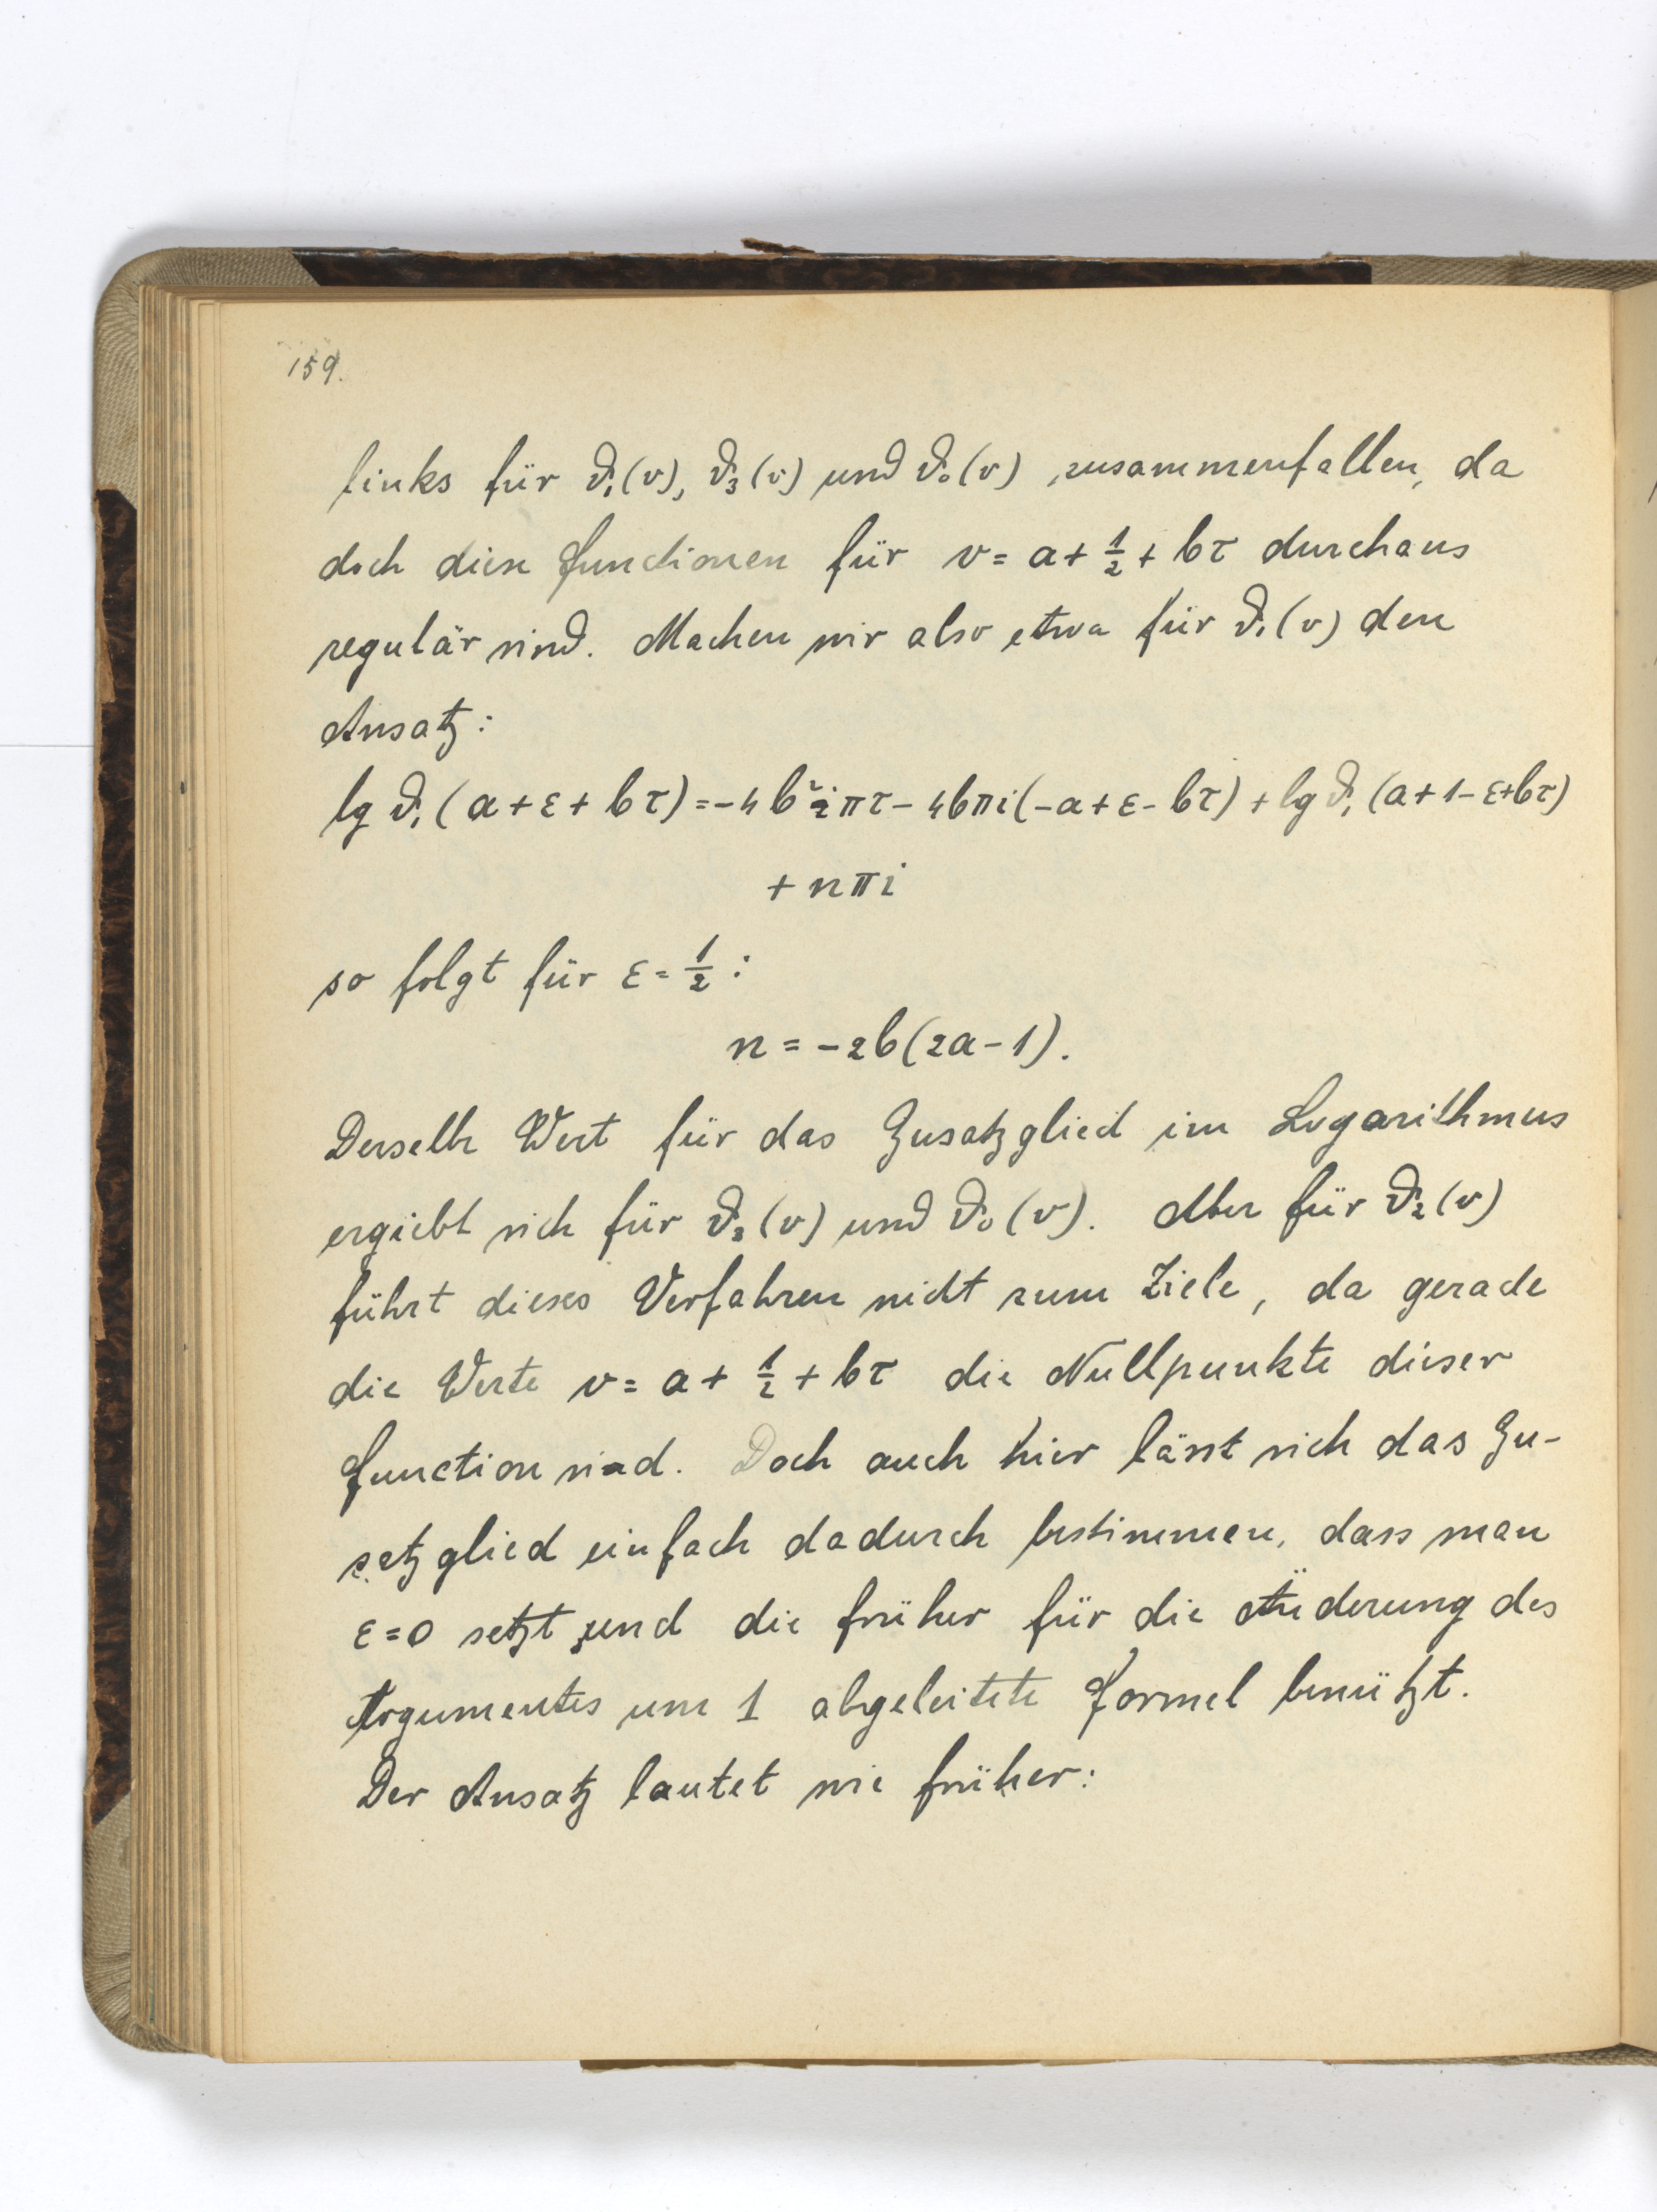 159.
links für ϑ₁(v), ϑ₃(v) und ϑ₀(v) zusammenfallen, da
doch diese Functionen für v = a + ½ + bτ durchaus
regulär sind. Machen wir also etwa für ϑ₁(v) den
Ansatz:
lg ϑ₁(a+ε+bτ) = -4b²iπτ - 4bπi(-a+ε-bτ) + lg ϑ₁(a+1-ε+bτ)
+ nπi
so folgt für ε = ½ :
n = -2b(2a-1).
Derselbe Wert für das Zusatzglied im Logarithmus
ergiebt sich für ϑ₃(v) und ϑ₀(v). Aber für ϑ₂(v)
führt dieses Verfahren nicht zum Ziele, da gerade
die Werte v = a + ½ + bτ die Nullpunkte dieser
Function sind. Doch auch hier lässt sich das Zu-
satzglied einfach dadurch bestimmen, dass man
ε=0 setzt und die früher für die Änderung des
Argumentes um 1 abgeleitete Formel benützt.
Der Ansatz lautet wie früher: